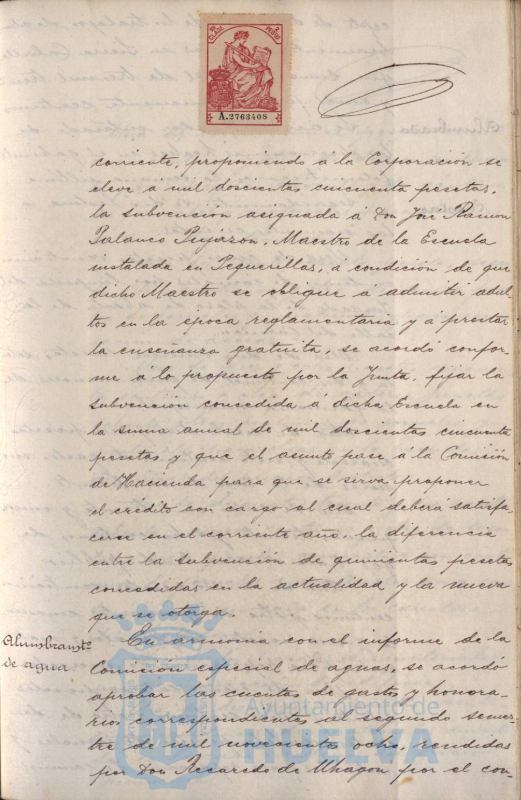 CLASE 11ª
1 PESETA
A.2763408
corriente, proponiendo á la Corporación se
eleve á mil doscientas cincuenta pesetas,
la subvención asignada á Don José Ramon
Palanco Pujazon, Maestro de la Escuela
instalada en Peguerillas, á condición de que
dicho Maestro se obligue á admitir adul-
tos en la época reglamentaria y á prestar
la enseñanza gratuita, se acordó confor-
me á lo propuesto por la Junta, fijar la
subvención concedida á dicha Escuela en
la suma anual de mil doscientas cincuenta
pesetas y que el asunto pase á la Comisión
de Hacienda para que se sirva proponer
el crédito con cargo al cual deberá satisfa-
cerse en el corriente año, la diferencia
entre la subvención de quinientas pesetas
concedidas en la actualidad y la nueva
que se otorga.
Alumbramtº
de agua
En armonia con el informe de la
Comisión especial de aguas, se acordo
aprobar las cuentas de gastos y honora-
rios correspondientes al segundo semes-
tre de mil novecientos ocho, rendidas
por Don Recaredo de Uhagon por el con-
Ayuntamiento de
HUELVA